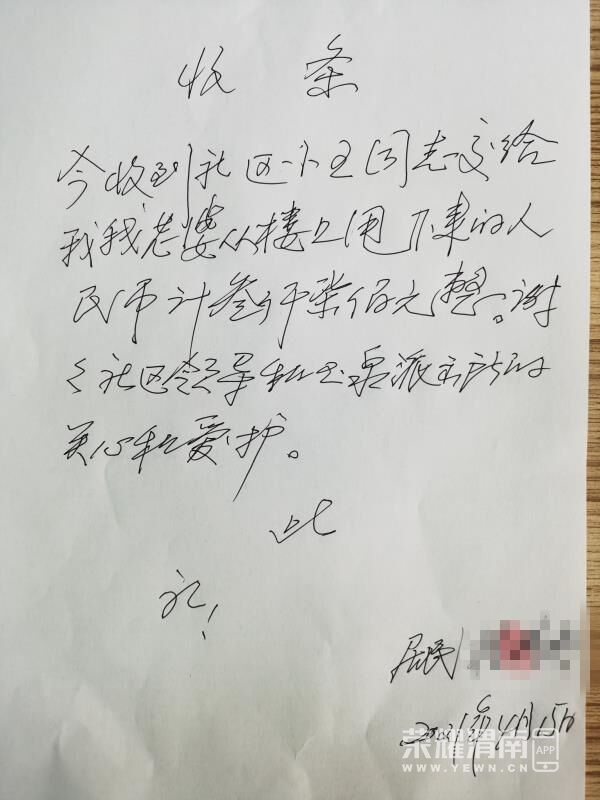 收 条
今收到社区小王同志交给
我我老婆从楼上甩下来的人
民币计叁仟柒佰元整。谢
々社区领导和玉泉派出所的
关心和爱护。
此
礼!
居民
2021年4月15日
荣耀渭南 APP
WWW.YEWN.CN